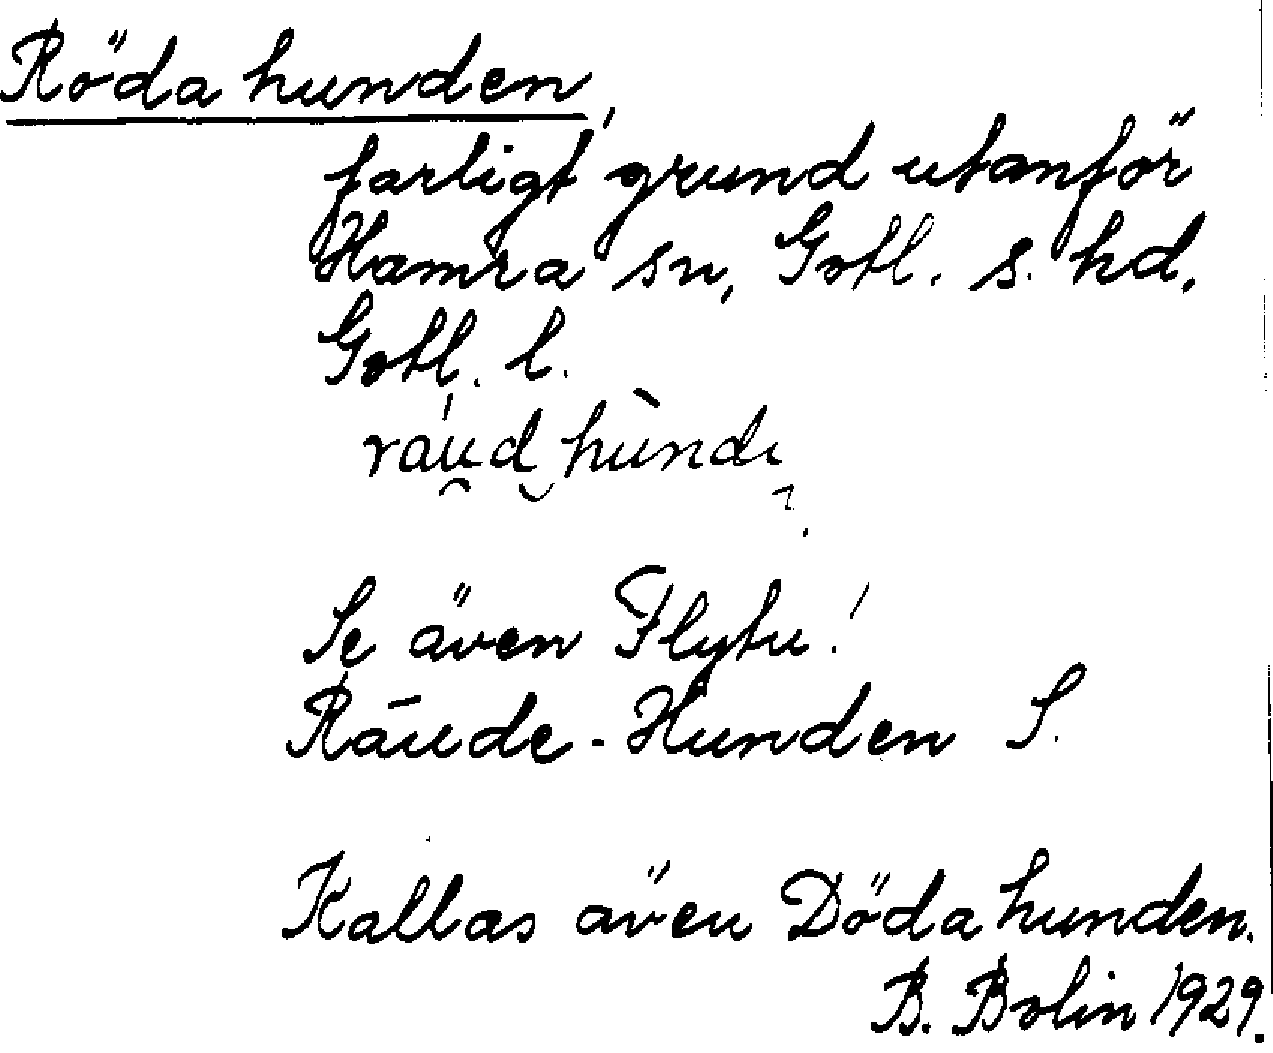 Röda hunden,
farligt grund utanför
Hamra sn, Gotl. s. hd.
Gotl. l.
Se även Flytu!
Räude-Hunden S.
Kallas även Döda hunden.
B. Bolin 1929.